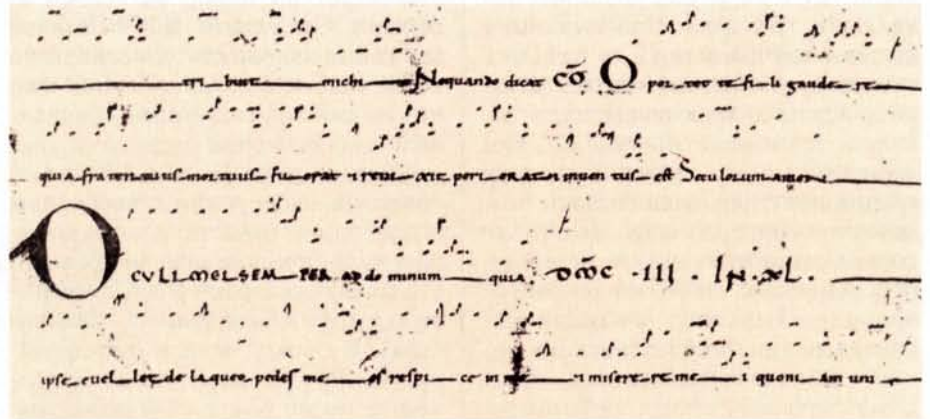 tri buit michi Nequando dicat CO Oper tet te fi li gaude re
qui a frater tuus mortuus fu erat et revi xit peri erat et inven tus est Seculorum amen
OCULI MEI SEM PER ad do minum quia DOMC III IN XL
ipse evel let de laqueo pedes me os respi ce in me et misere re me i quoni am uni